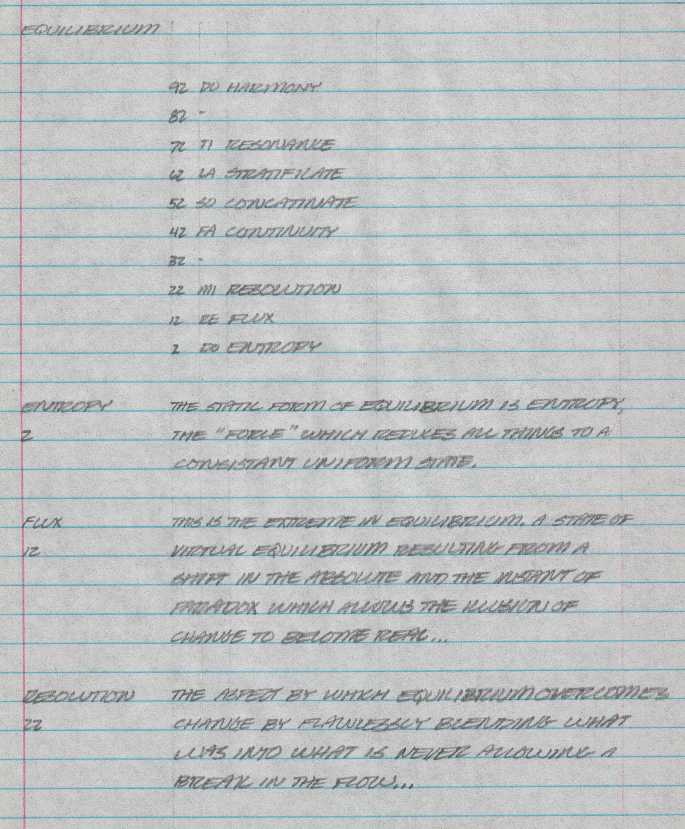 EQUILIBRIUM
92 DO HARMONY
82 -
72 TI RESONANCE
62 LA STRATIFICATE
52 SO CONCATINATE
42 FA CONTINUITY
32 -
22 MI RESOLUTION
12 RE FLUX
2 DO ENTROPY
ENTROPY THE STATIC FORM OF EQUILIBRIUM IS ENTROPY,
2 THE "FORCE" WHICH REDUCES ALL THINGS TO A
CONSISTANT UNIFORM STATE.
FLUX THIS IS THE EXTREME IN EQUILIBRIUM. A STATE OF
12 VIRTUAL EQUILIBRIUM RESULTING FROM A
SHIFT IN THE ABSOLUTE AND THE INSTANT OF
PARADOX WHICH ALLOWS THE ILLUSION OF
CHANGE TO BECOME REAL...
RESOLUTION THE ASPECT BY WHICH EQUILIBRIUM OVERCOMES
22 CHANGE BY FLAWLESSLY BLENDING WHAT
WAS INTO WHAT IS NEVER ALLOWING A
BREAK IN THE FLOW...